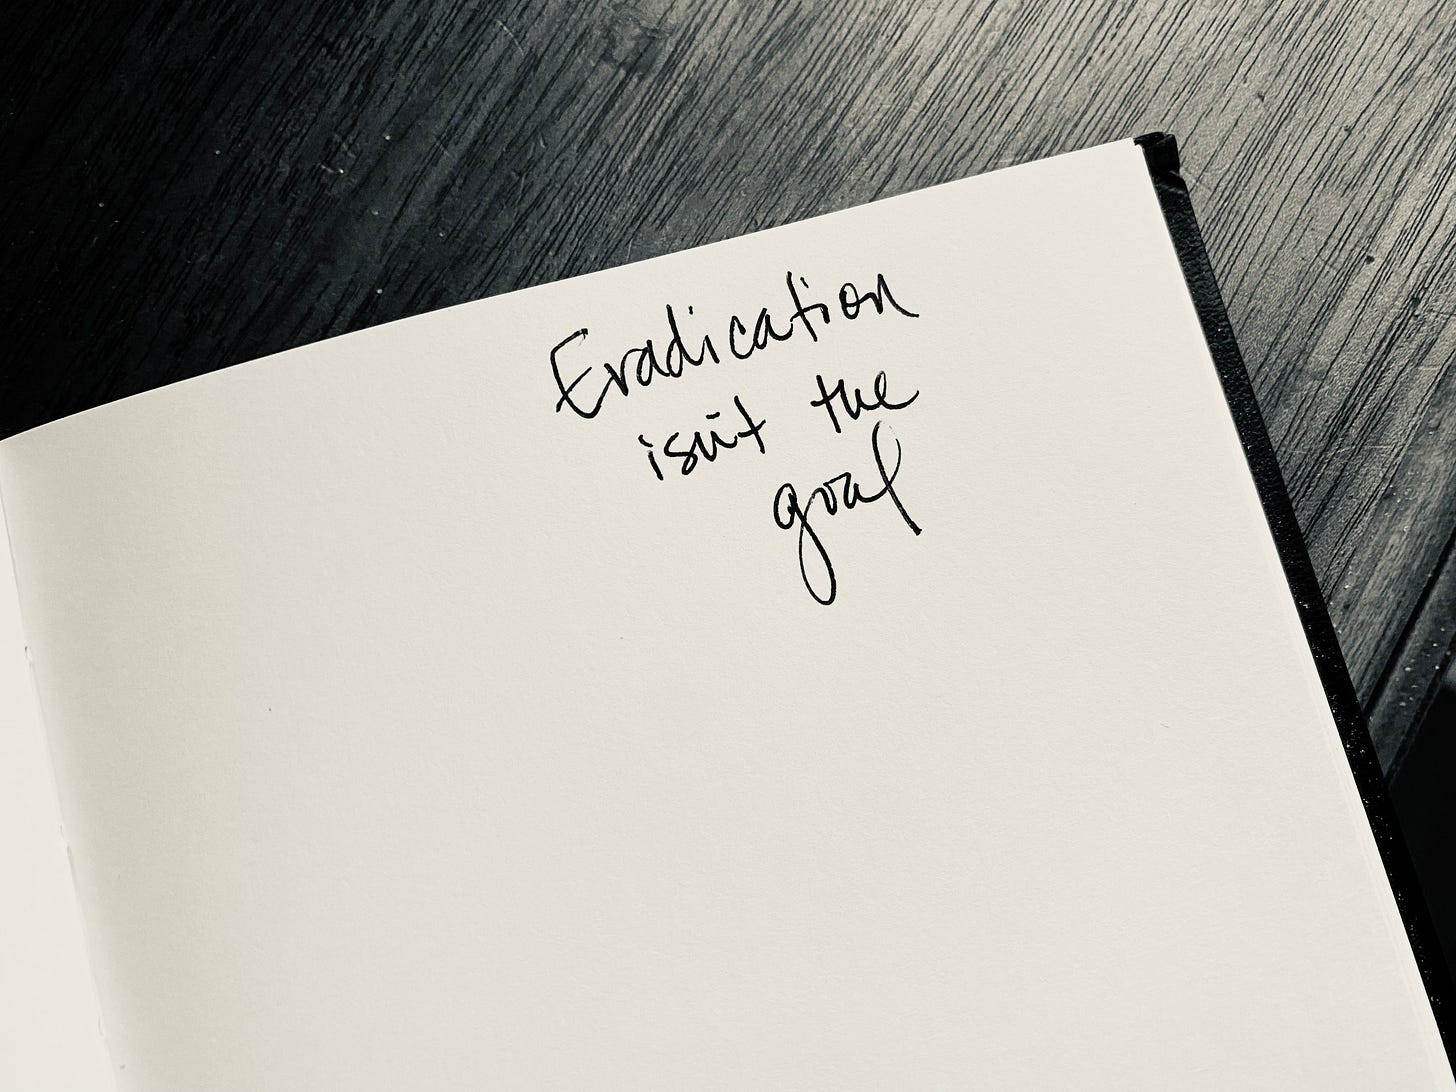 Eradication
isn't the
goal